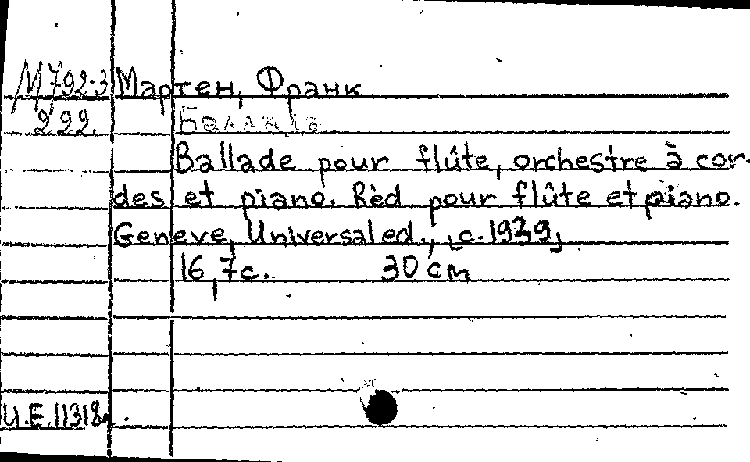 М792-3 Мартен, Франк
222. Балада
Ballade pour flûte, orchestre à cor-
des et piano. Rèd pour flûte et piano.
Geneve, Universal ed., [c. 1939]
16, 7c. 30 cm
U.E. 11318